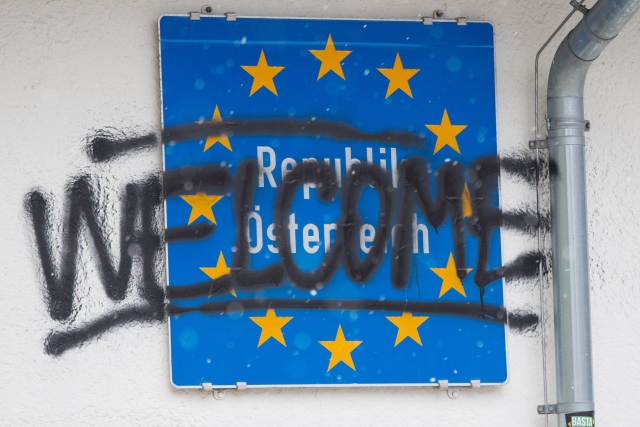 Republik
Österreich
WELCOME
BASTA